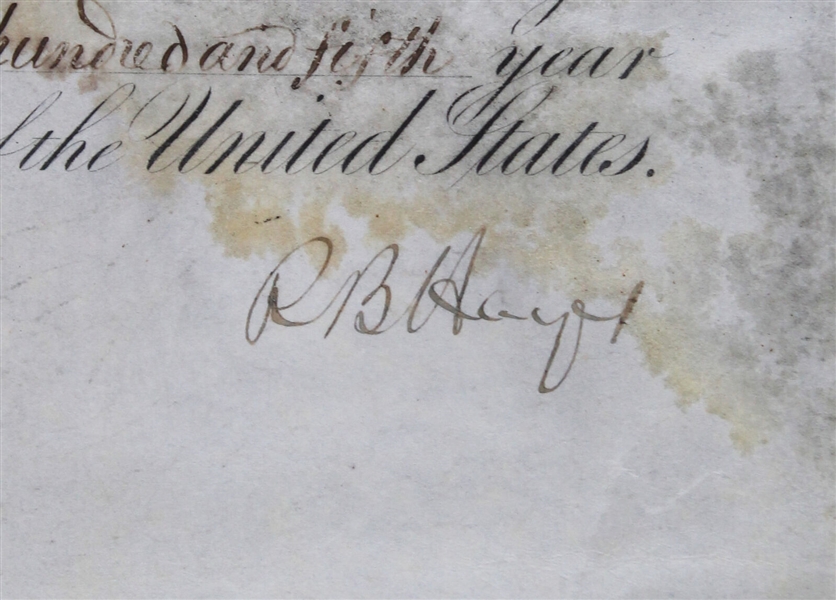 hundred and fifth year
f the United States.
R B Hayes